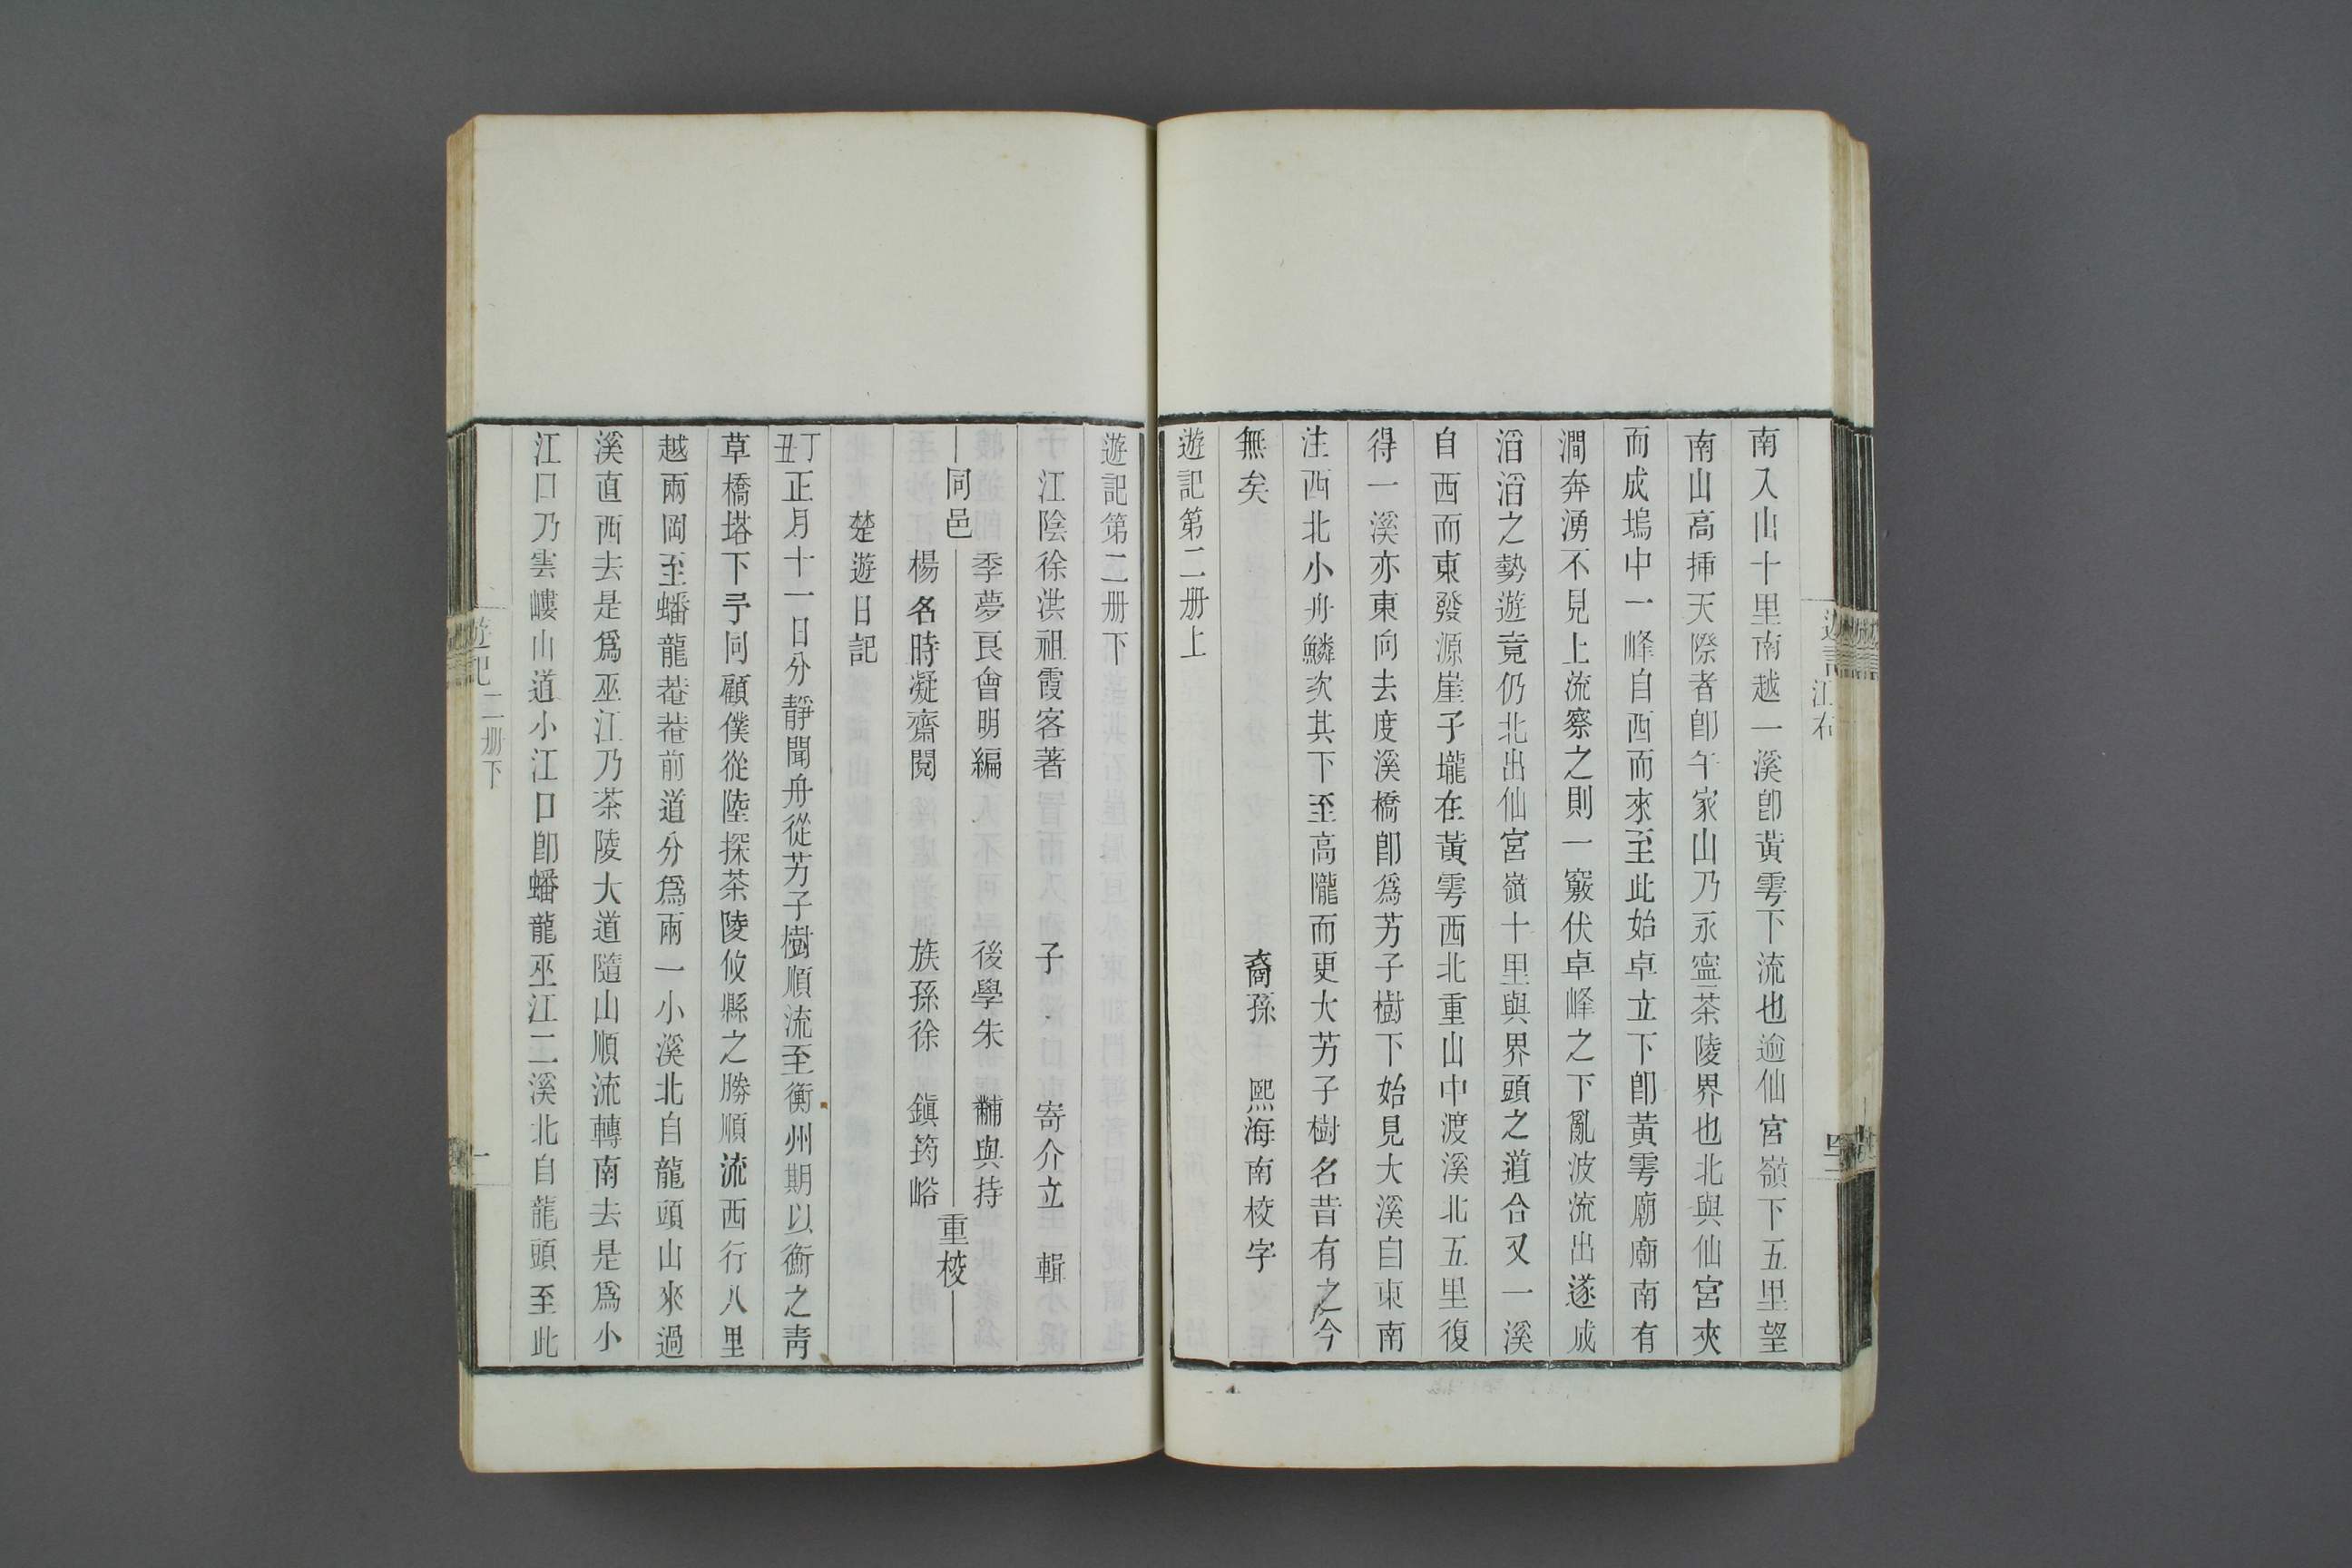 遊記 江右
南入山十里南越一溪卽黃雩下流也逾仙宮嶺下五里望
南山高揷天際者卽午家山乃永寧茶陵界也北與仙宮夾
而成塢中一峰自西而來至此始卓立下卽黃雩廟廟南有
澗奔湧不見上流察之則一竅伏卓峰之下亂波流出遂成
滔滔之勢遊竟仍北出仙宮嶺十里與界頭之道合又一溪
自西而東發源崖子壠在黃雩西北重山中渡溪北五里復
得一溪亦東向去度溪橋卽爲芳子樹下始見大溪自東南
注西北小舟鱗次其下至高隴而更大芳子樹名昔有之今
無矣
裔孫 熙海南校字
遊記第二册上
遊記第二册下
江陰徐洪祖霞客著 子 寄介立 輯
同邑
季夢良會明編 後學朱 黼與持
楊名時凝齋閱 族孫徐 鎭筠峪
重校
楚遊日記
丁丑正月十一日分靜聞舟從芳子樹順流至衡州期以衡之靑
草橋塔下予同顧僕從陸探茶陵攸縣之勝順流西行八里
越兩岡至蟠龍菴菴前道分爲兩一小溪北自龍頭山來過
溪直西去是爲巫江乃茶陵大道隨山順流轉南去是爲小
江口乃雲嶁山道小江口卽蟠龍巫江二溪北自龍頭至此
遊記 二册下 一